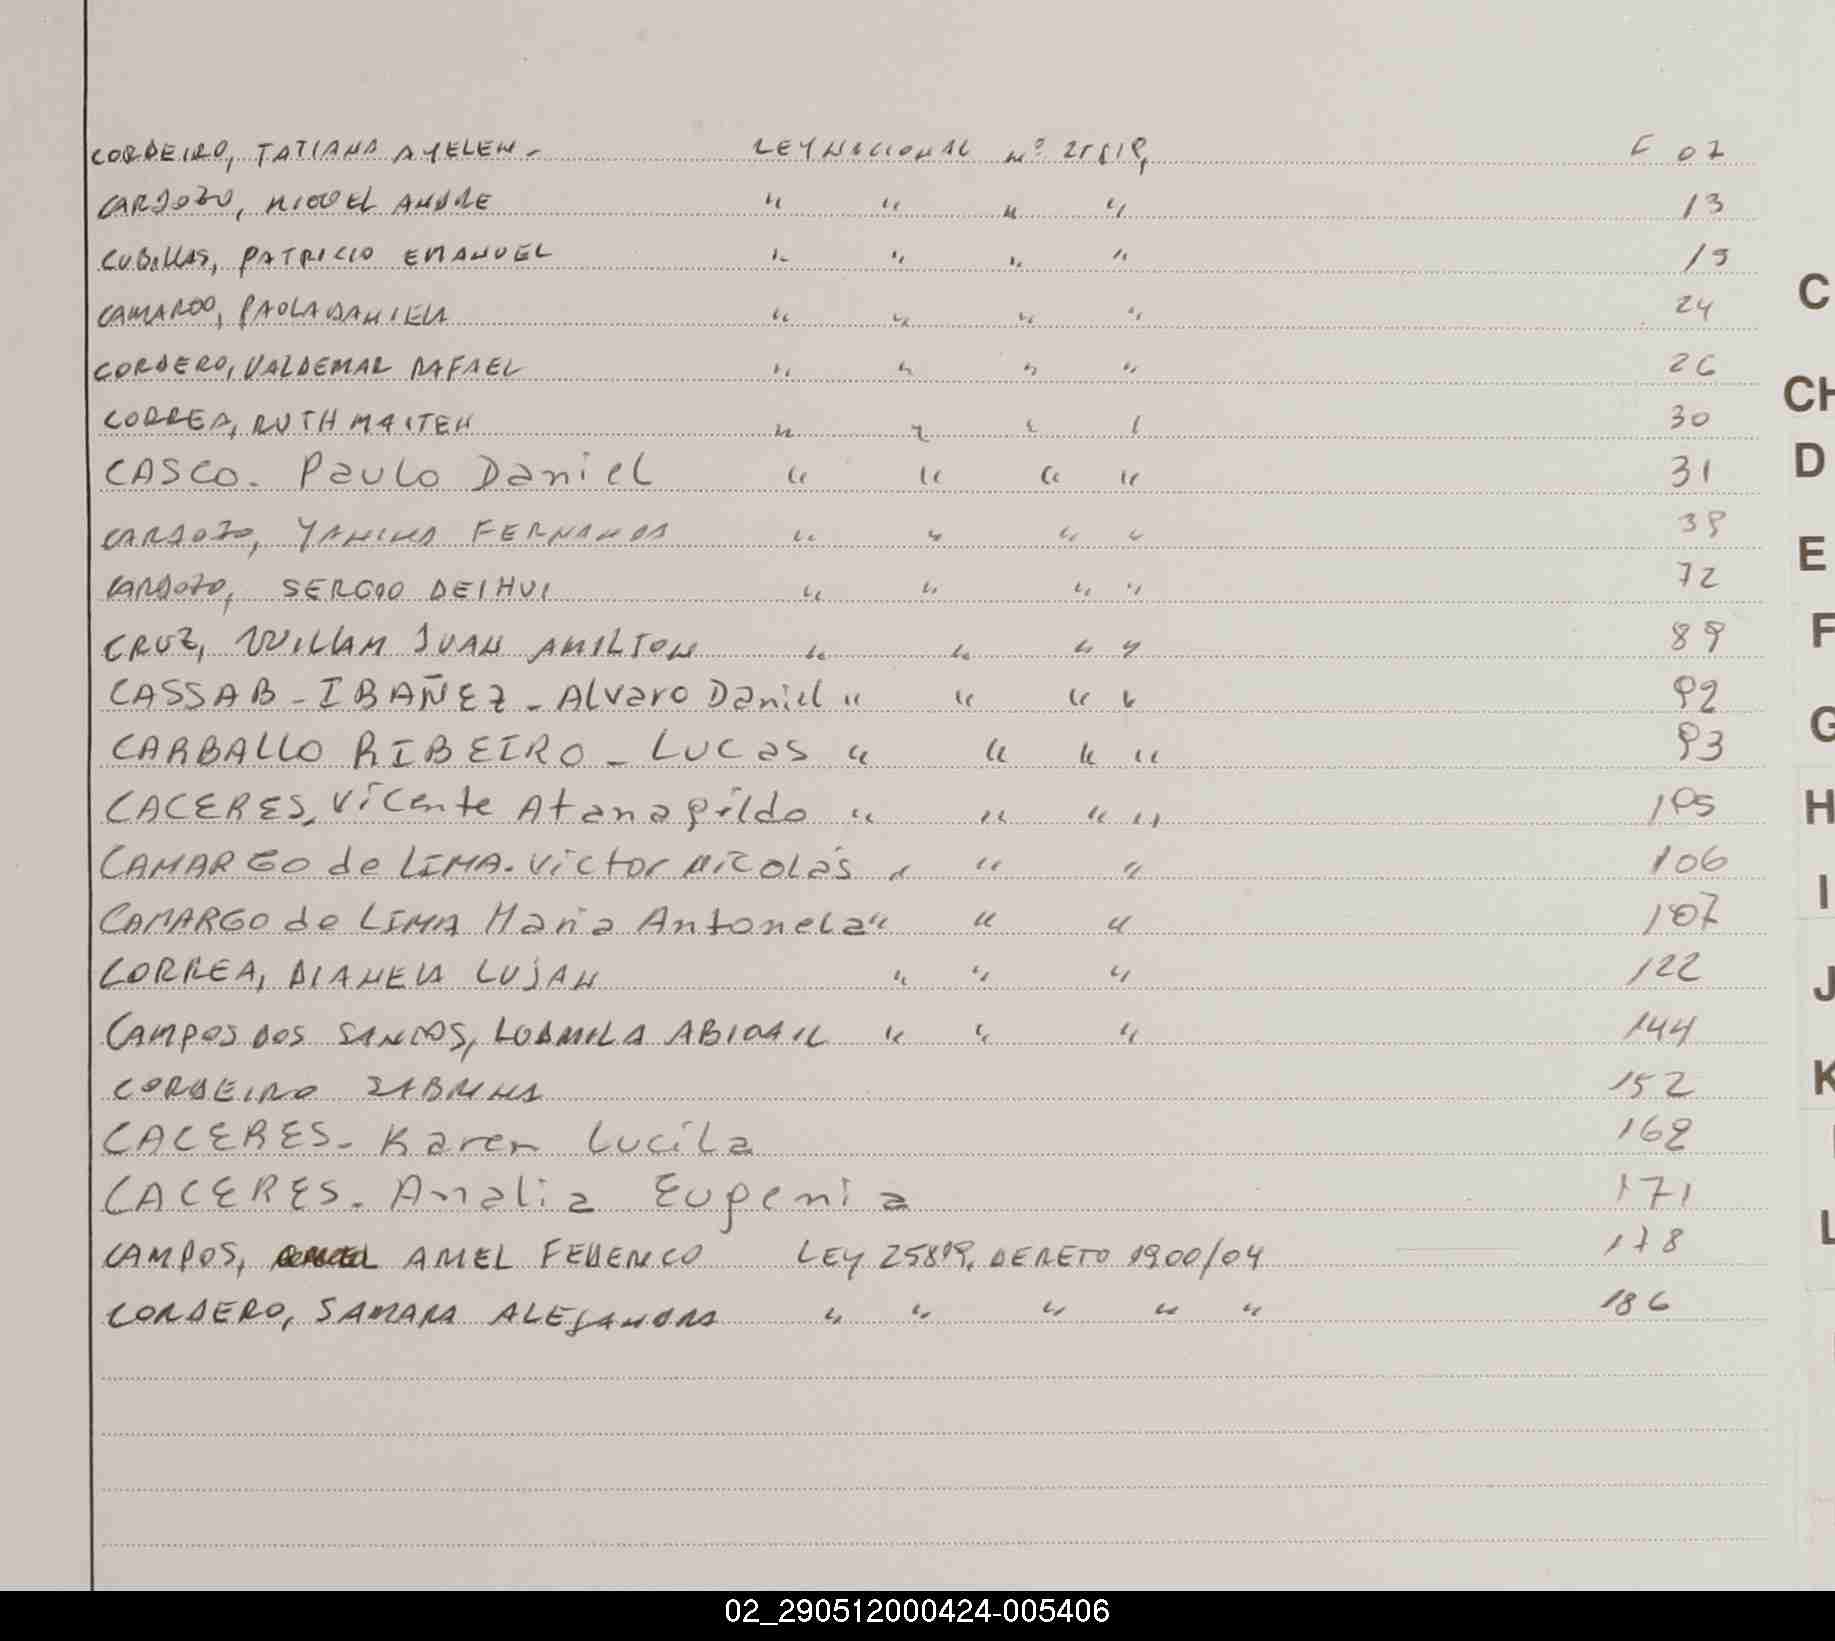 CORDEIRO, TATIANA AYELEN - LEY NACIONAL Nº 25819, F 07
CARDOZO, MIGUEL ANDRE " " " " 13
CUBILLAS, PATRICIO EMANUEL " " " " 19
CAMARGO, PAOLA DANIELA " " " " 24
CORDERO, VALDEMAR RAFAEL " " " " 26
CORREA, RUTH MAITEN " " " " 30
CASCO. Paulo Daniel " " " " 31
CARDOZO, YANINA FERNANDA " " " " 39
CARDOZO, SERGIO DEIHUI " " " " 72
CRUZ, WILLAM JUAN AMILTON " " " " 89
CASSAB - IBAÑEZ - Alvaro Daniel " " " " 92
CARBALLO RIBEIRO - Lucas " " " " 93
CACERES, Vicente Atanagildo " " " " 105
CAMARGO de LIMA. Victor Nicolás " " " 106
CAMARGO de LIMA Maria Antonela " " " 107
CORREA, DIANELA LUJAN " " " 122
CAMPOS DOS SANTOS, LUDMILA ABIGAIL " " " 144
CORDEIRO SABRINA 152
CACERES - Karen Lucila 162
CACERES - Analia Eugenia 171
CAMPOS, ARIEL FEDERICO LEY 25819, DECRETO 1900/04 178
CORDERO, SAMARA ALEJANDRA " " " " " 186
C
CH
D
E
F
G
H
I
J
K
L
02_290512000424-005406